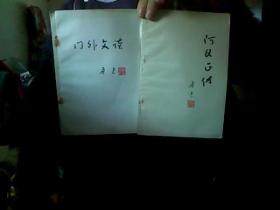 门外文谈
鲁迅
阿Q正传
鲁迅